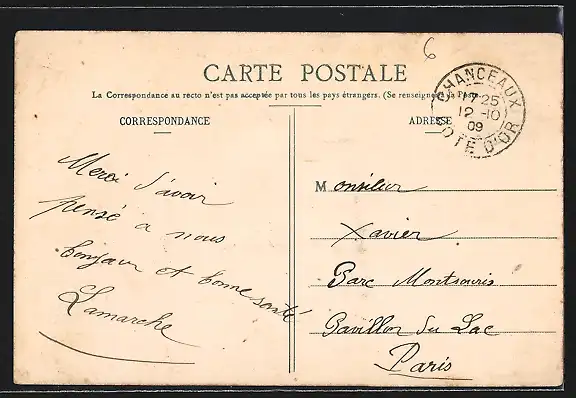 6
CARTE POSTALE
La Correspondance au recto n'est pas acceptée par tous les pays étrangers. (Se renseigner à la Poste
CORRESPONDANCE
ADRESSE
CHANCEAUX
17-25
12 -10
09
COTE D'OR
Merci d'avoir
pensé a nous
bonjour et bonne santé
Lamarche
Monsieur
Xavier
Parc Montsouris
Pavillon du Lac
Paris